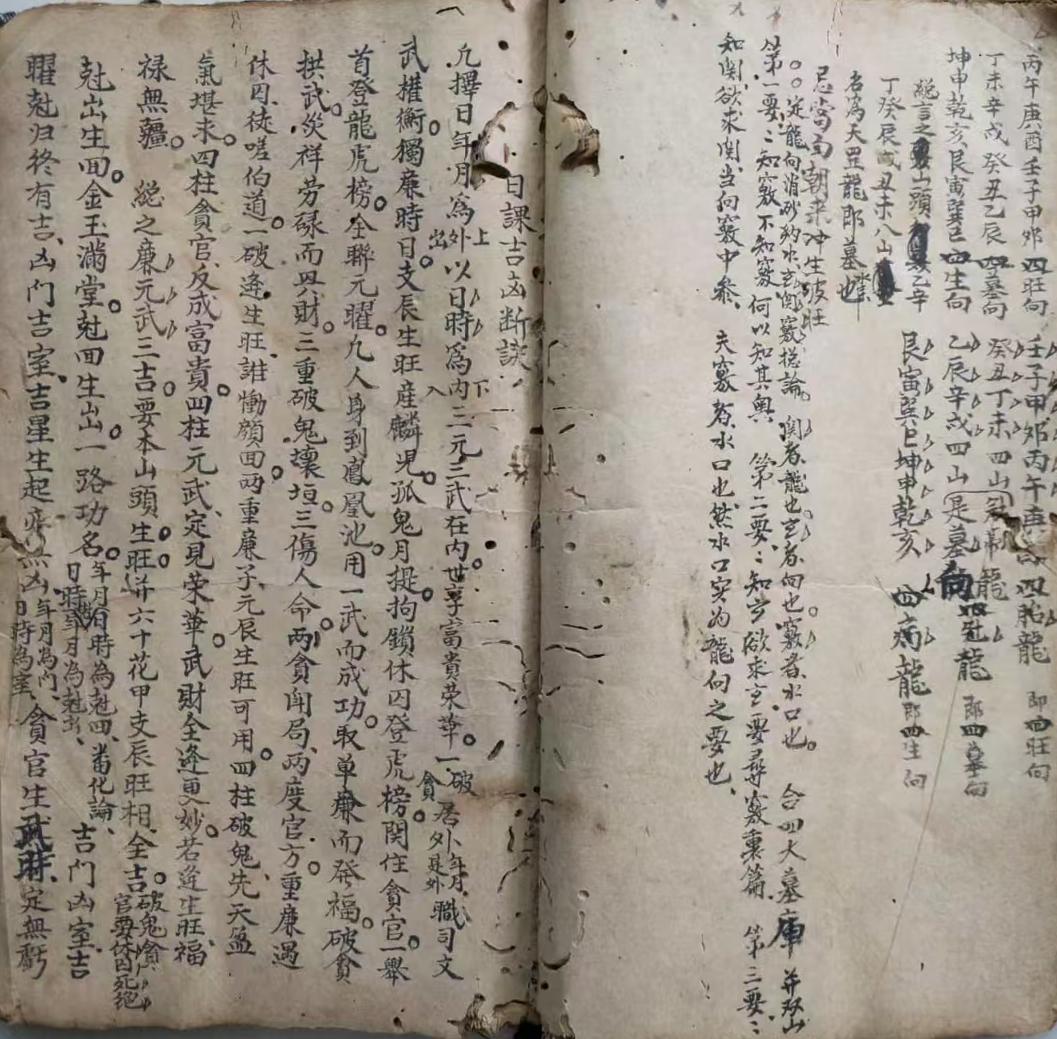 丙午庚酉壬子甲夘四旺向 壬子甲夘丙午庚酉四胎龍 即四旺向
丁未辛戌癸丑乙辰四墓向 癸丑丁未四山 龍
坤申乾亥艮寅巽巳四生向 乙辰辛戌四山是墓向四 龍 即四墓向
総言之 山頭 乙辛 艮寅巽巳坤申乾亥 四病龍 即四生向
丁癸辰戌丑未八山
名為天罡龍即墓也
忌當向朝来冲生破旺
○○定龍向消砂納水玄関竅総論。 関者龍也玄者向也。竅者水口也。 合四大墓庫 并双山
第一要:知竅不知竅何以知其奥 第二要:知玄欲求玄要尋竅裏篇 第三要:
知関欲求関当向竅中叅、 夫竅者水口也然水口实为龍向之要也、
日課吉凶断訣
凡擇日年月為外出上以日時為内入下三元三武在内世享富貴荣華。一破貪居外年月是外職司文
武權衡。獨廉時日支辰生旺産麟児。孤鬼月提拘鎖休囚登虎榜。関住貪官一舉
首登龍虎榜。全聯元曜。凡人身到鳳凰池。用一武而成功。取单廉而発福。破貪
拱武。災祥劳碌而畀財。三重破鬼壞垣。三傷人命。兩貪闹局、两度官方。重廉遇
休囚。徒嗟伯道。一破逢生旺。誰慟顔回。两重廉子元辰生旺可用。四柱破鬼先天盈
氣堪求。四柱貪官、反成富貴。四柱元武、定見荣華。武財全逢更妙。若逢生旺、福
禄無疆。 総之廉元武三吉。要本山頭生旺。并六十花甲支辰旺相全吉。破鬼貪官要休囚死絕
尅出生回。金玉滿堂。尅回生出。一路功名。年月 日時為尅回、 日時 年月為尅出、凿化論、 吉門凶室、吉
曜尅归終有吉、凶门吉室、吉星生起 無凶、年月為门、日時為室、貪官生武財、定無虧